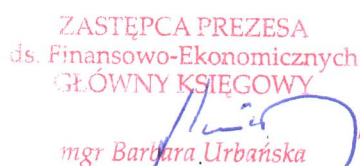 ZASTĘPCA PREZESA
ds. Finansowo-Ekonomicznych
GŁÓWNY KSIĘGOWY
mgr Barbara Urbańska